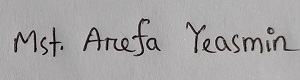 Mst. Arefa Yeasmin